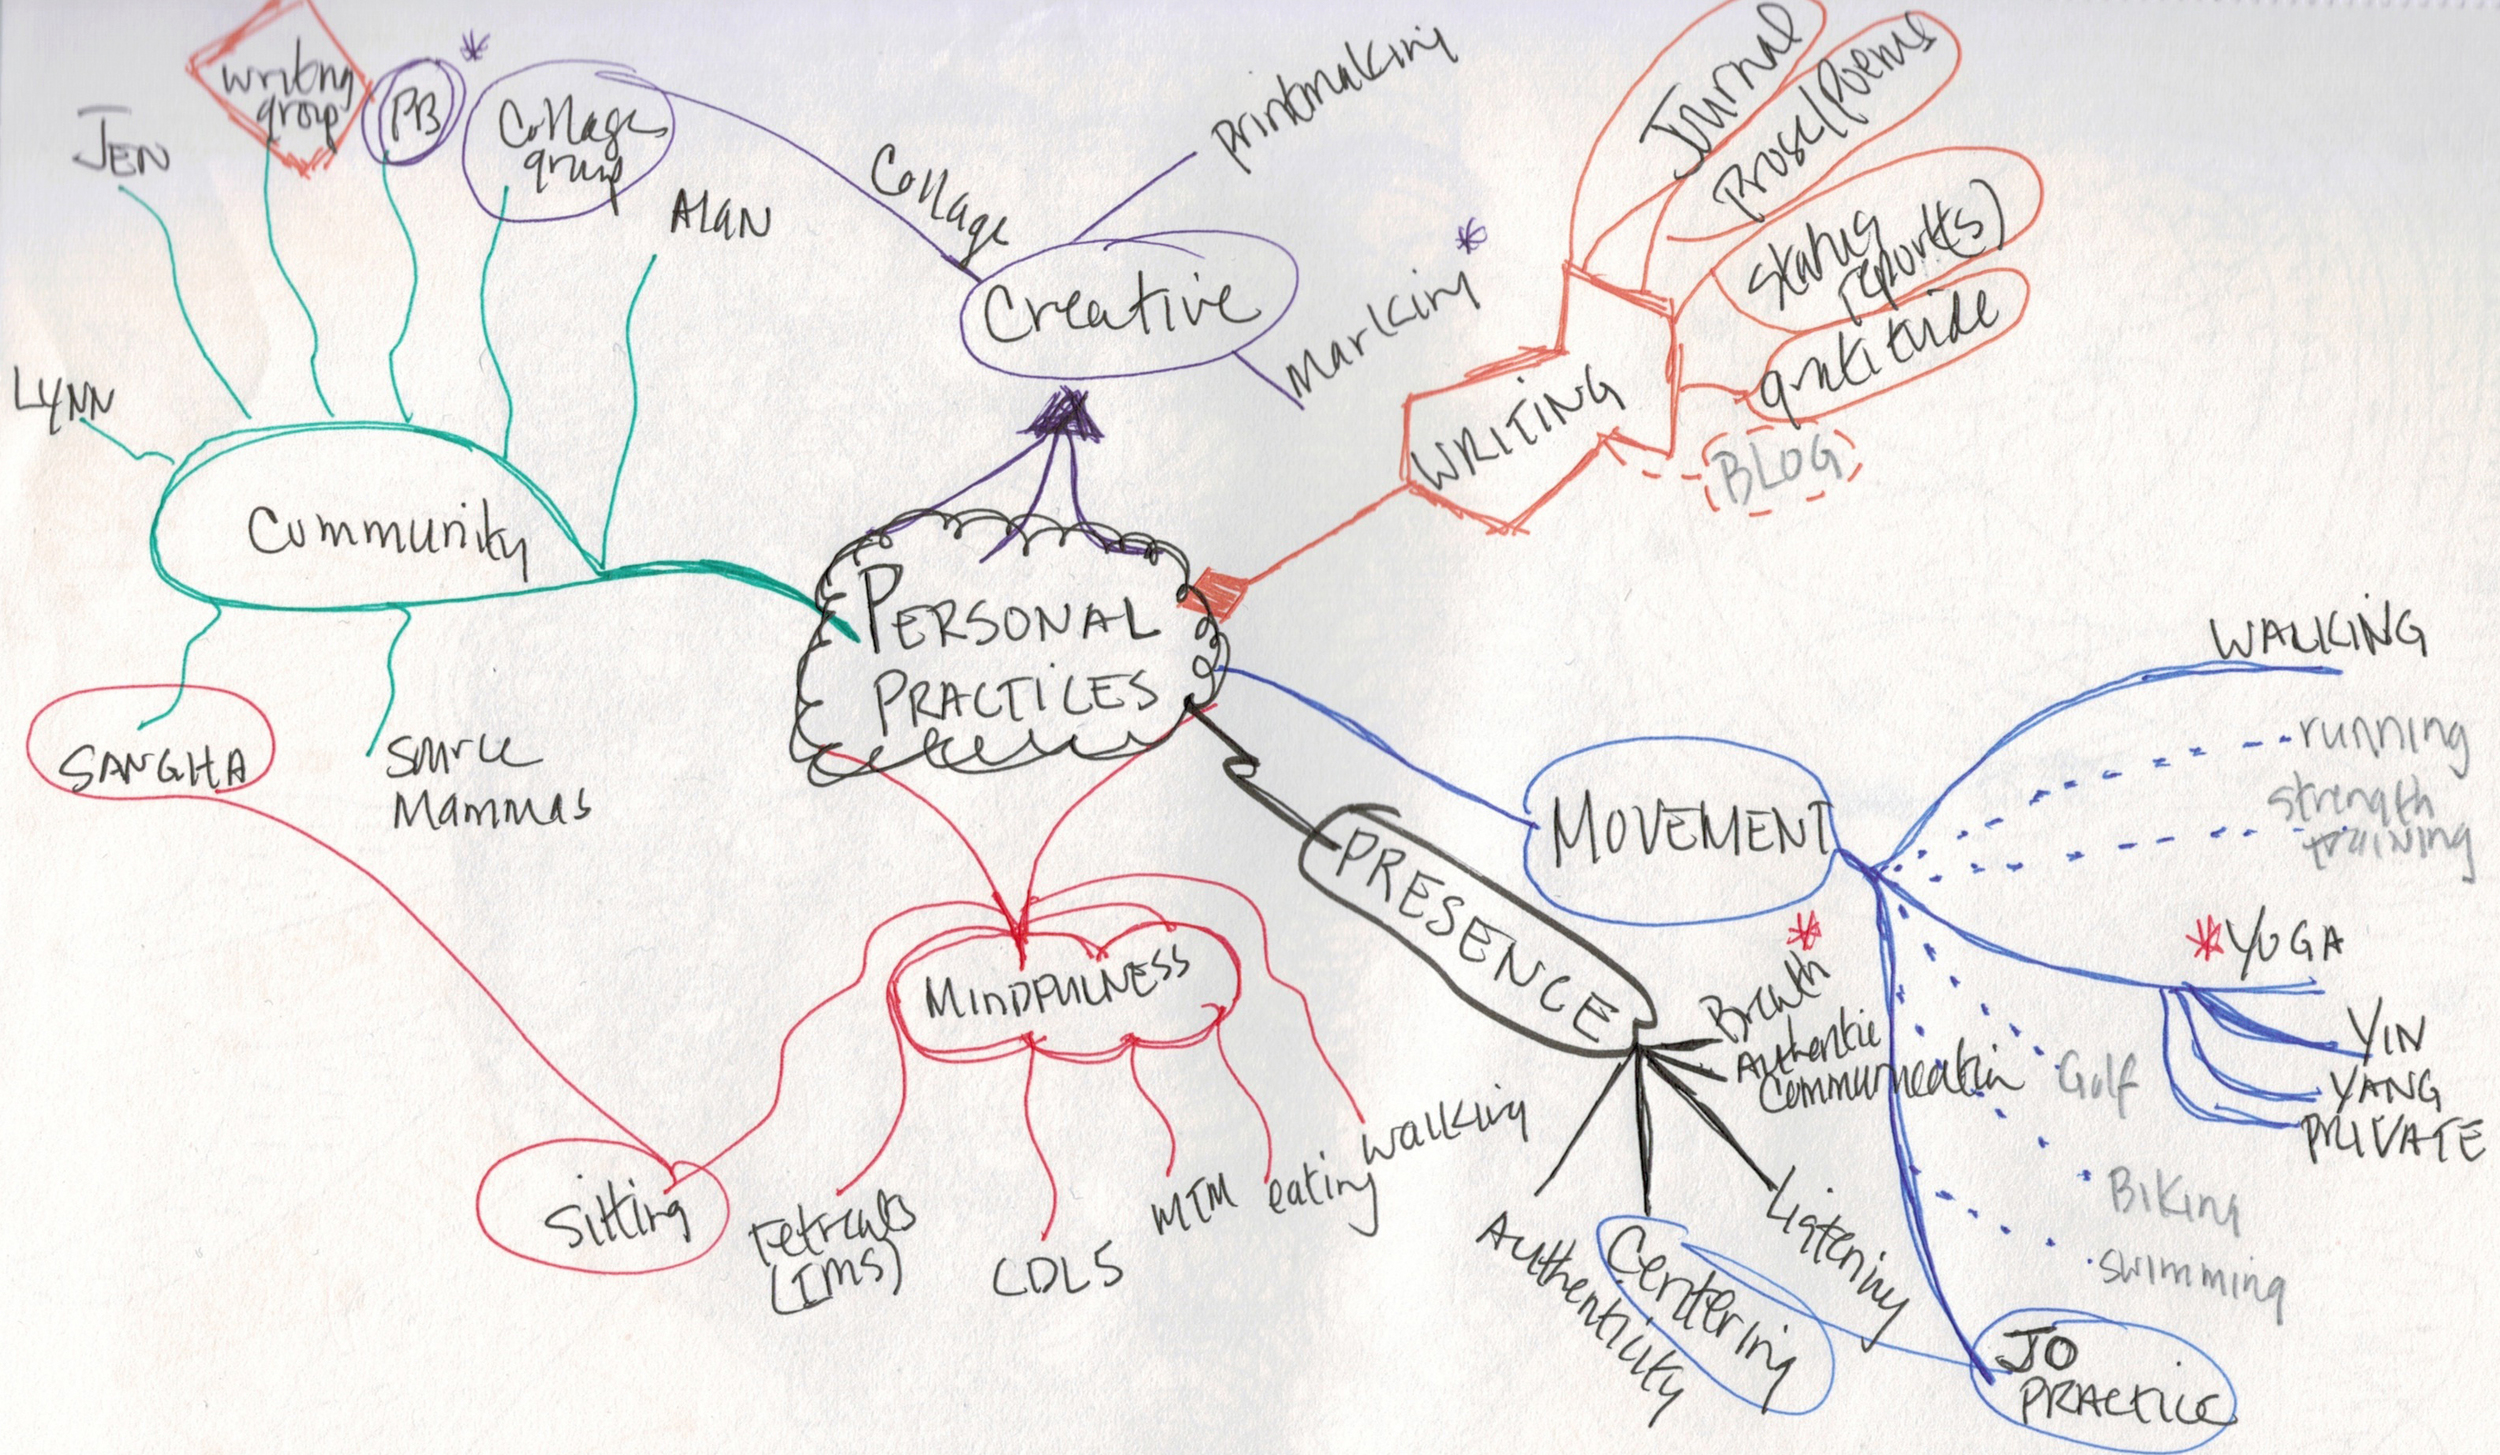 writing
group
PB
Collage
group
JEN
ALAN
LYNN
Community
SANGHA
Source
Mammas
Collage
printmaking
Creative
Marking
Journal
Prose/Poems
status
report(s)
gratitude
WRITING
BLOG
PERSONAL
PRACTICES
WALKING
running
strength
training
MOVEMENT
YOGA
YIN
YANG
PRIVATE
Golf
Biking
swimming
JO
PRACTICE
PRESENCE
Breath
Authentic
Communication
Listening
Centering
Authenticity
MINDFULNESS
Sitting
retreats
(IMS)
CDL5
MTM
eating
walking